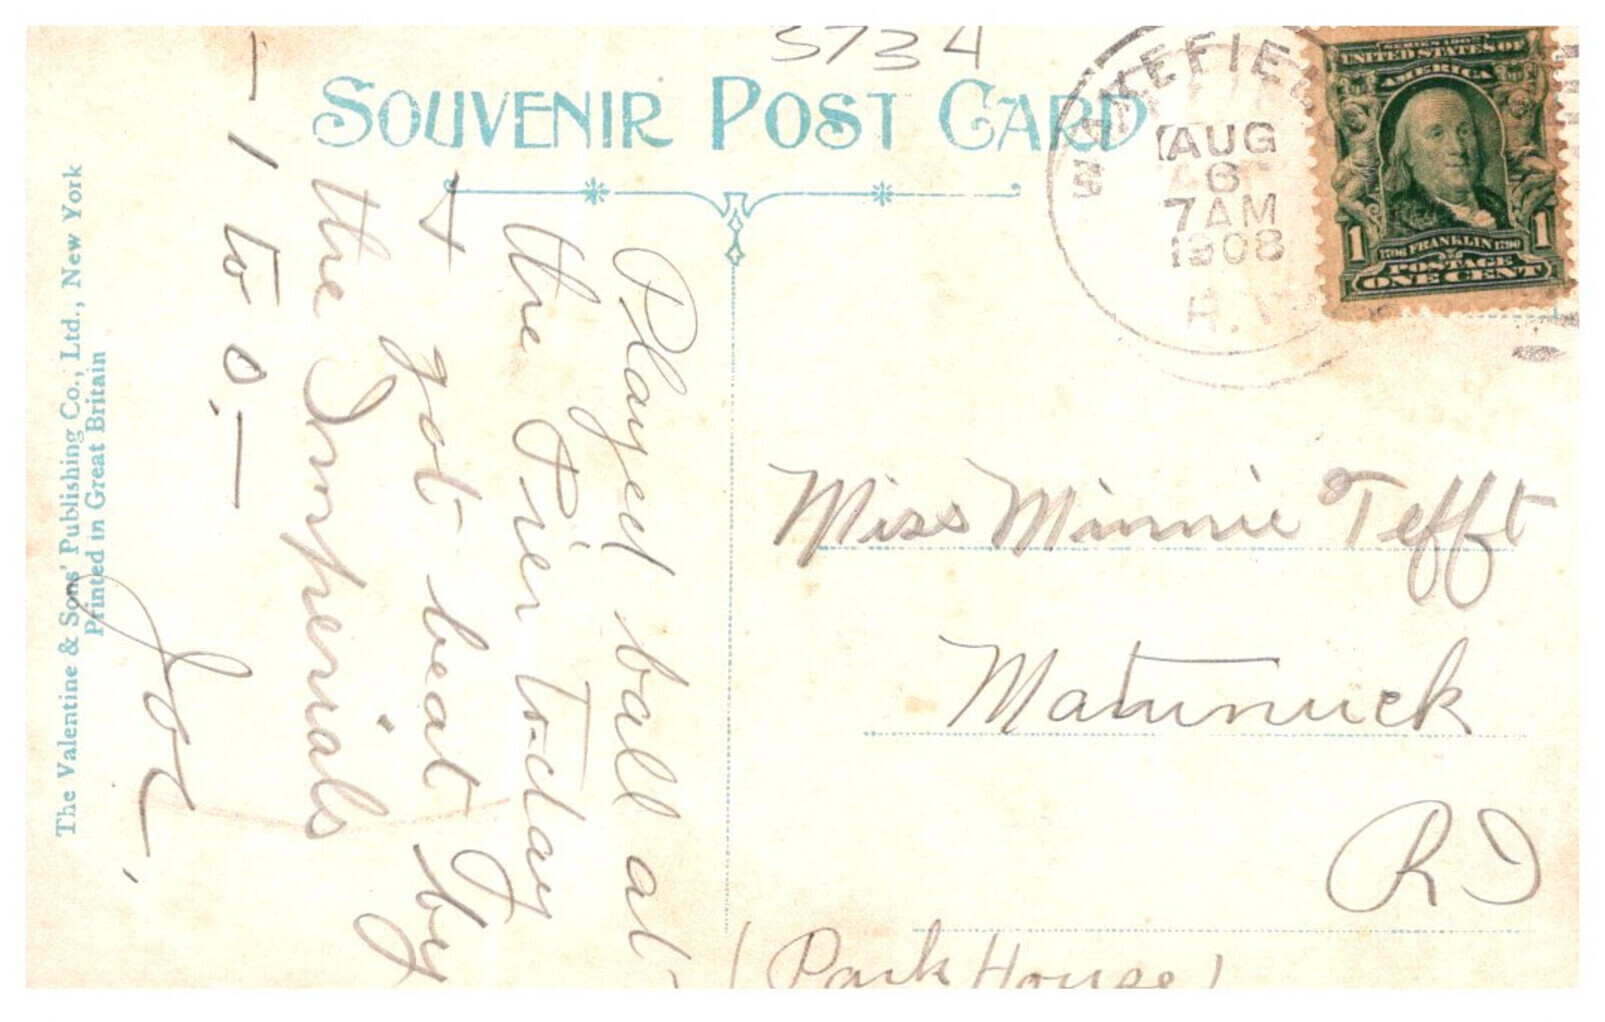 5734
SOUVENIR POST CARD
WAKEFIEL
AUG
6
7AM
1908
R.I.
SERIES 1902
UNITED STATES OF
AMERICA
1 1706 FRANKLIN 1790 1
POSTAGE
ONE CENT
Played ball at
the Pier to-day
& got beat by
the Imperials
– 1 to 0. –
Joe,
Miss Minnie Tefft
Matunuck
RI
(Park House)
The Valentine & Sons' Publishing Co., Ltd., New York
Printed in Great Britain